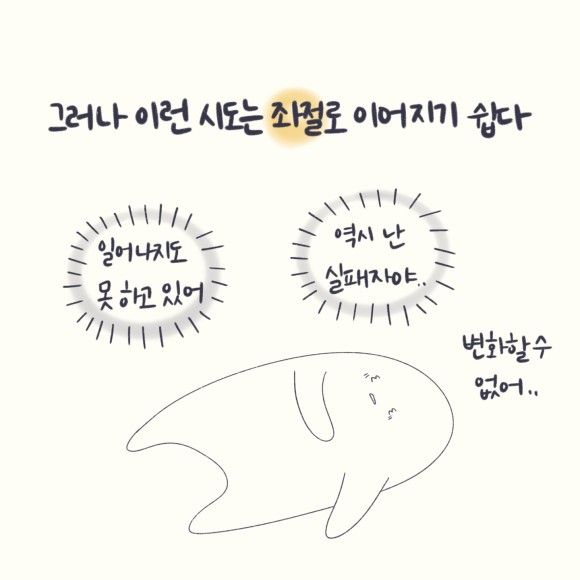 그러나 이런 시도는 좌절로 이어지기 쉽다
일어나지도
못 하고 있어
역시 난
실패자야..
변화할 수
없어..